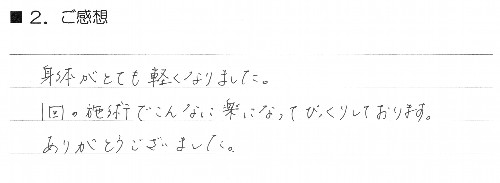 ■ 2. ご感想
身体がとても軽くなりました。
1回の施術でこんなに楽になってびっくりしております。
ありがとうございました。